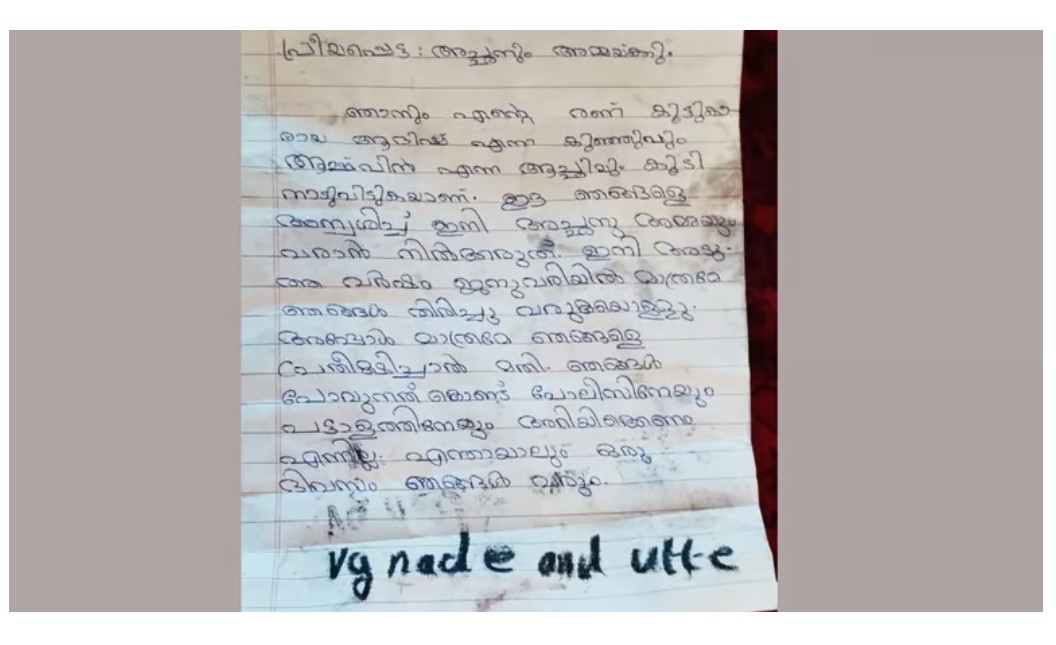 പ്രീയപ്പെട്ട : അച്ഛനും അമ്മയ്ക്കു.
ഞാനും എന്റെ രണ് കൂട്ടുകാ
രായ ആദിഷ് എന്ന കുഞ്ഞുവും
ആശ്വിൻ എന്ന അച്ചുവും കൂടി
നാടുവിടുകയാണ്. ഇദ ഞങ്ങളെ
അന്വശിച്ച് ഇനി അച്ഛനു അമ്മയും
വരാൻ നിൽക്കരുത്. ഇനി അടു-
ത്ത വർഷം ജനുവരിയിൽ മാത്രമേ
ഞങ്ങൾ തിരിച്ചു വരുകയൊള്ളു.
അപ്പോൾ മാത്രമേ ഞങ്ങളെ
പ്രതീക്ഷിച്ചാൽ മതി. ഞങ്ങൾ
പോവുന്നത് കൊണ്ട് പോലിസിനേയും
പട്ടാളത്തിനേയും അറിയിക്കണം
എന്നില്ല. എന്തായാലും ഒരു
ദിവസം ഞങ്ങൾ വരും.
vg nade and utte